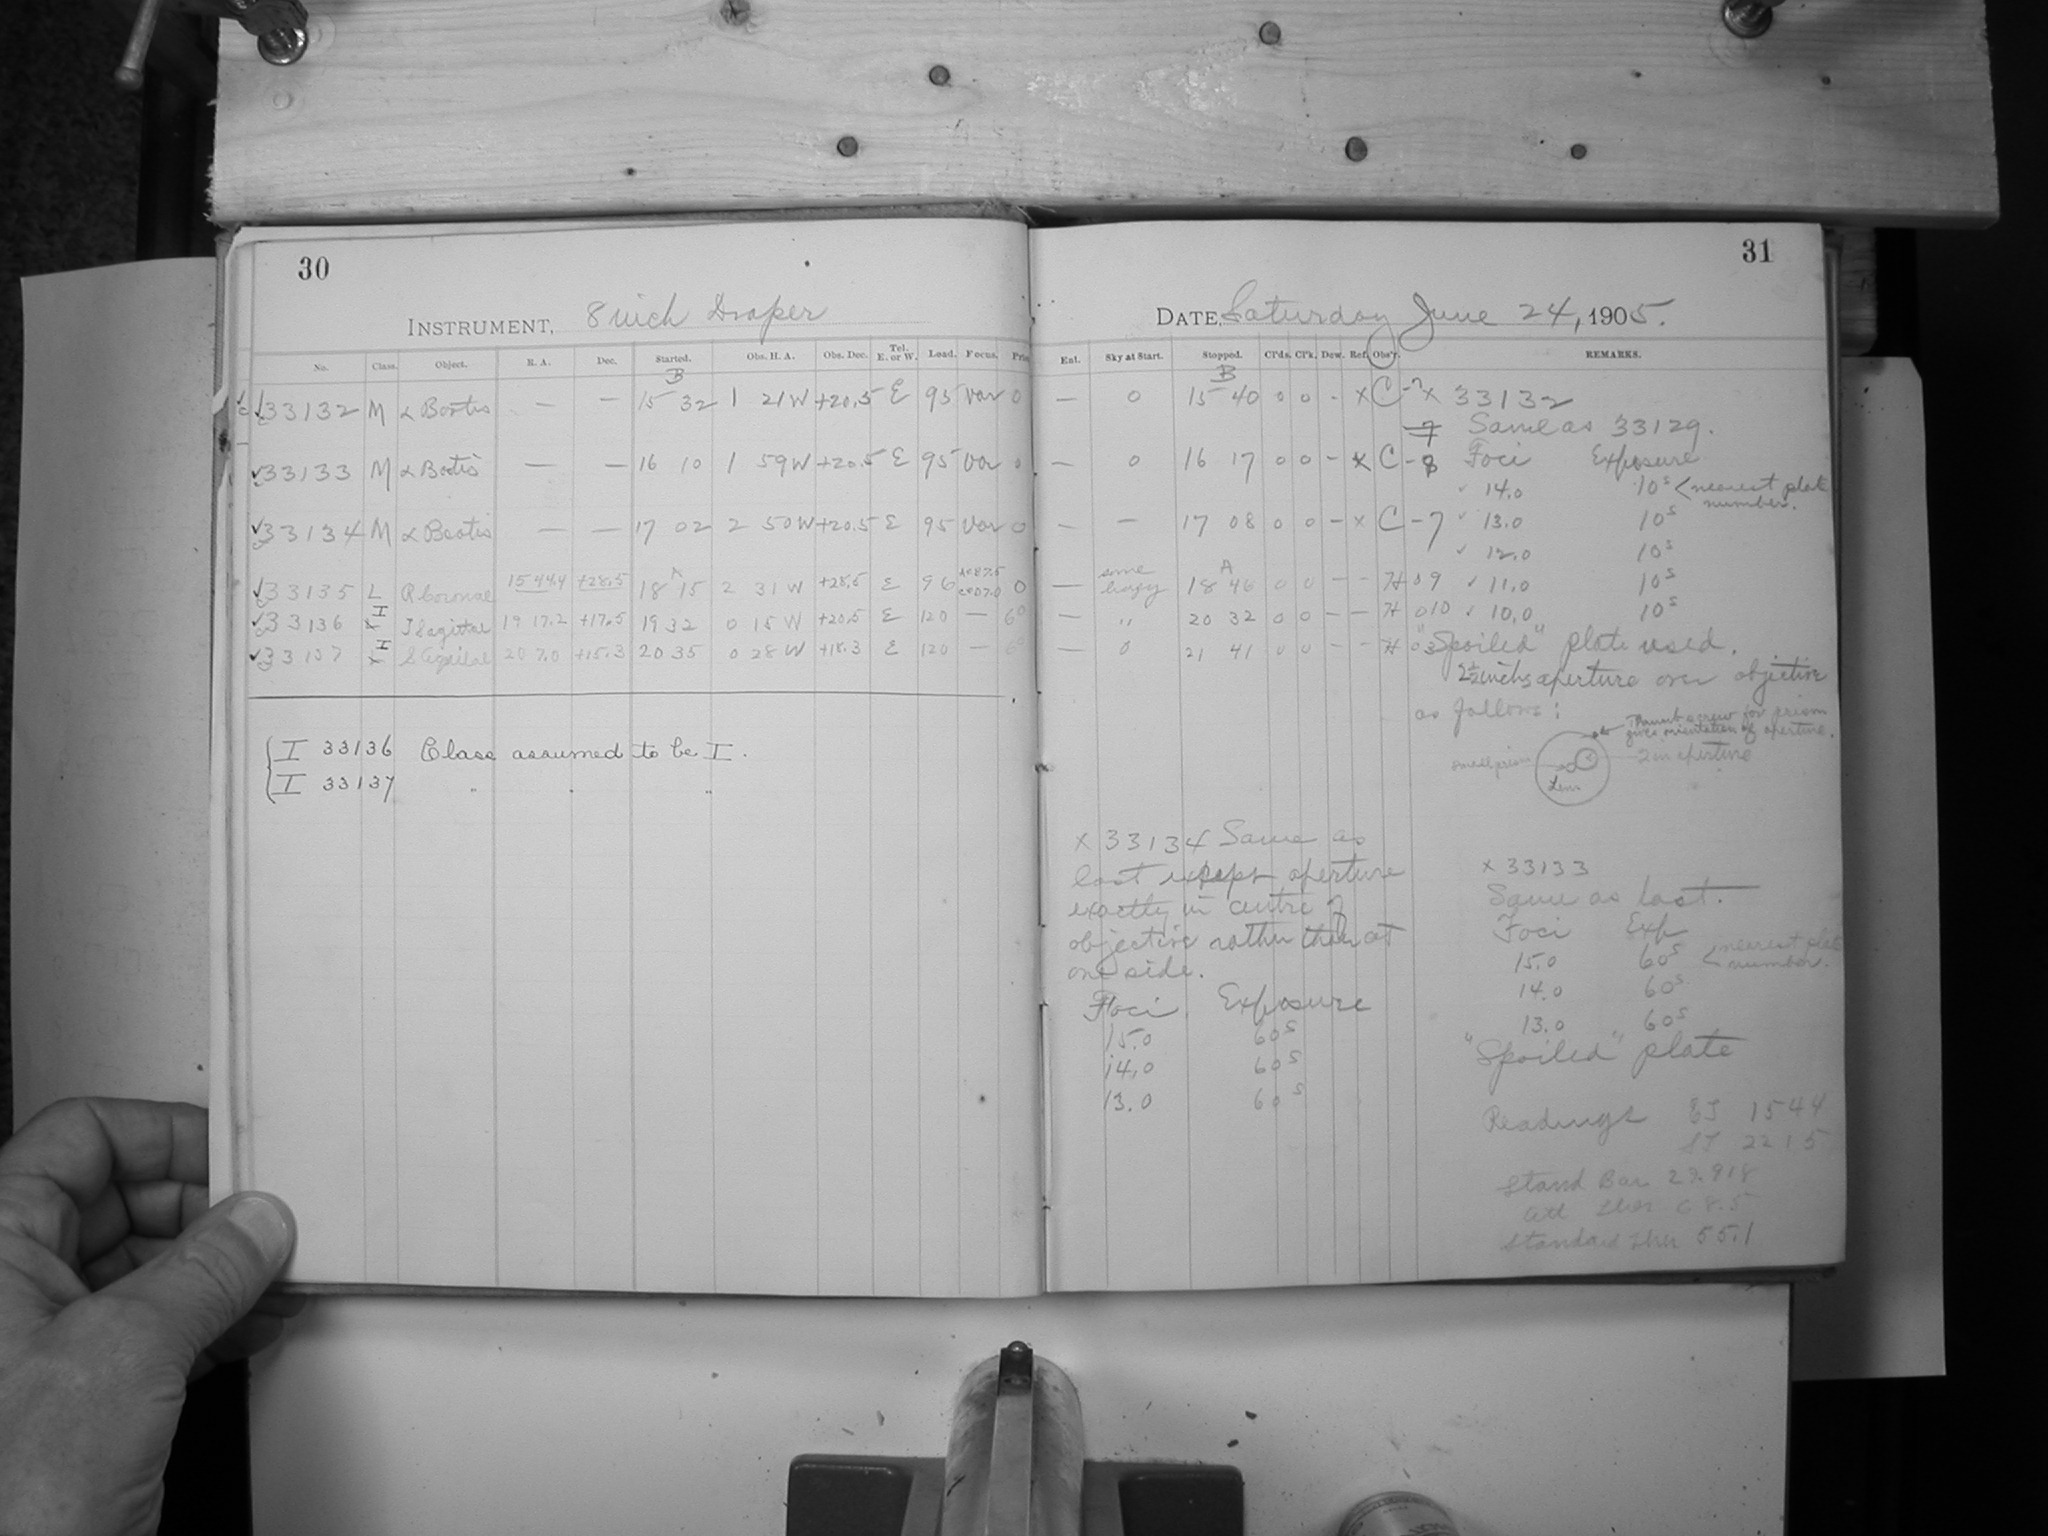 30
INSTRUMENT, 8 inch Draper
No. Class. Object. R. A. Dec. Started. Obs. H. A. Obs. Dec. Tel. E. or W. Load. Focus.
B
33132 M α Bootis — — 15 32 1 21 W +20.5 E 95 Var 0
33133 M α Bootis — — 16 10 1 59 W +20.5 E 95 Var 0
33134 M α Bootis — — 17 02 2 50 W +20.5 E 95 Var 0
A
33135 L R Coronae 15 44.4 +28.5 18 15 2 31 W +28.5 E 96 0
I
33136 19 17.2 +17.5 19 32 0 15 W +20.5 E 120 — 6°
I
33137 S Aquilae 20 7.0 +15.3 20 35 0 28 W +18.3 E 120 — 6°
I 33136 Class assumed to be I.
I 33137 " " "
31
DATE, Saturday June 24, 1905.
Ent. Sky at Start. Stopped. Cl'ds. Cl'k. Dew. Ref. Obs'r. REMARKS.
B
— 0 15 40 0 0 - x C -7 x 33132
7 Same as 33129.
— 0 16 17 0 0 - x C -8 Foci Exposure
14.0 10s < nearest plate
number.
— — 17 08 0 0 - x C -7 13.0 10s
12.0 10s
A
— some hazy 18 46 0 0 - - H 09 11.0 10s
— " 20 32 0 0 - - H 010 10.0 10s
— 0 21 41 0 0 - - H 03 "Spoiled" plate used.
2½ inchs aperture over objective
as follows:
Thumb screw for prism
gives orientation of aperture.
small prism 2 in aperture
Lens
x 33134 Same as
last except aperture
exactly in centre of
objective rather than at
one side.
Foci Exposure
15.0 60s
14.0 60s
13.0 60s
x 33133
Same as last.
Foci Exp
15.0 60s < nearest plate
number.
14.0 60s
13.0 60s
"Spoiled" plate
Readings 1544
ST 2215
Stand Bar 29.918
Att Ther 68.5
Standard Ther 55.1